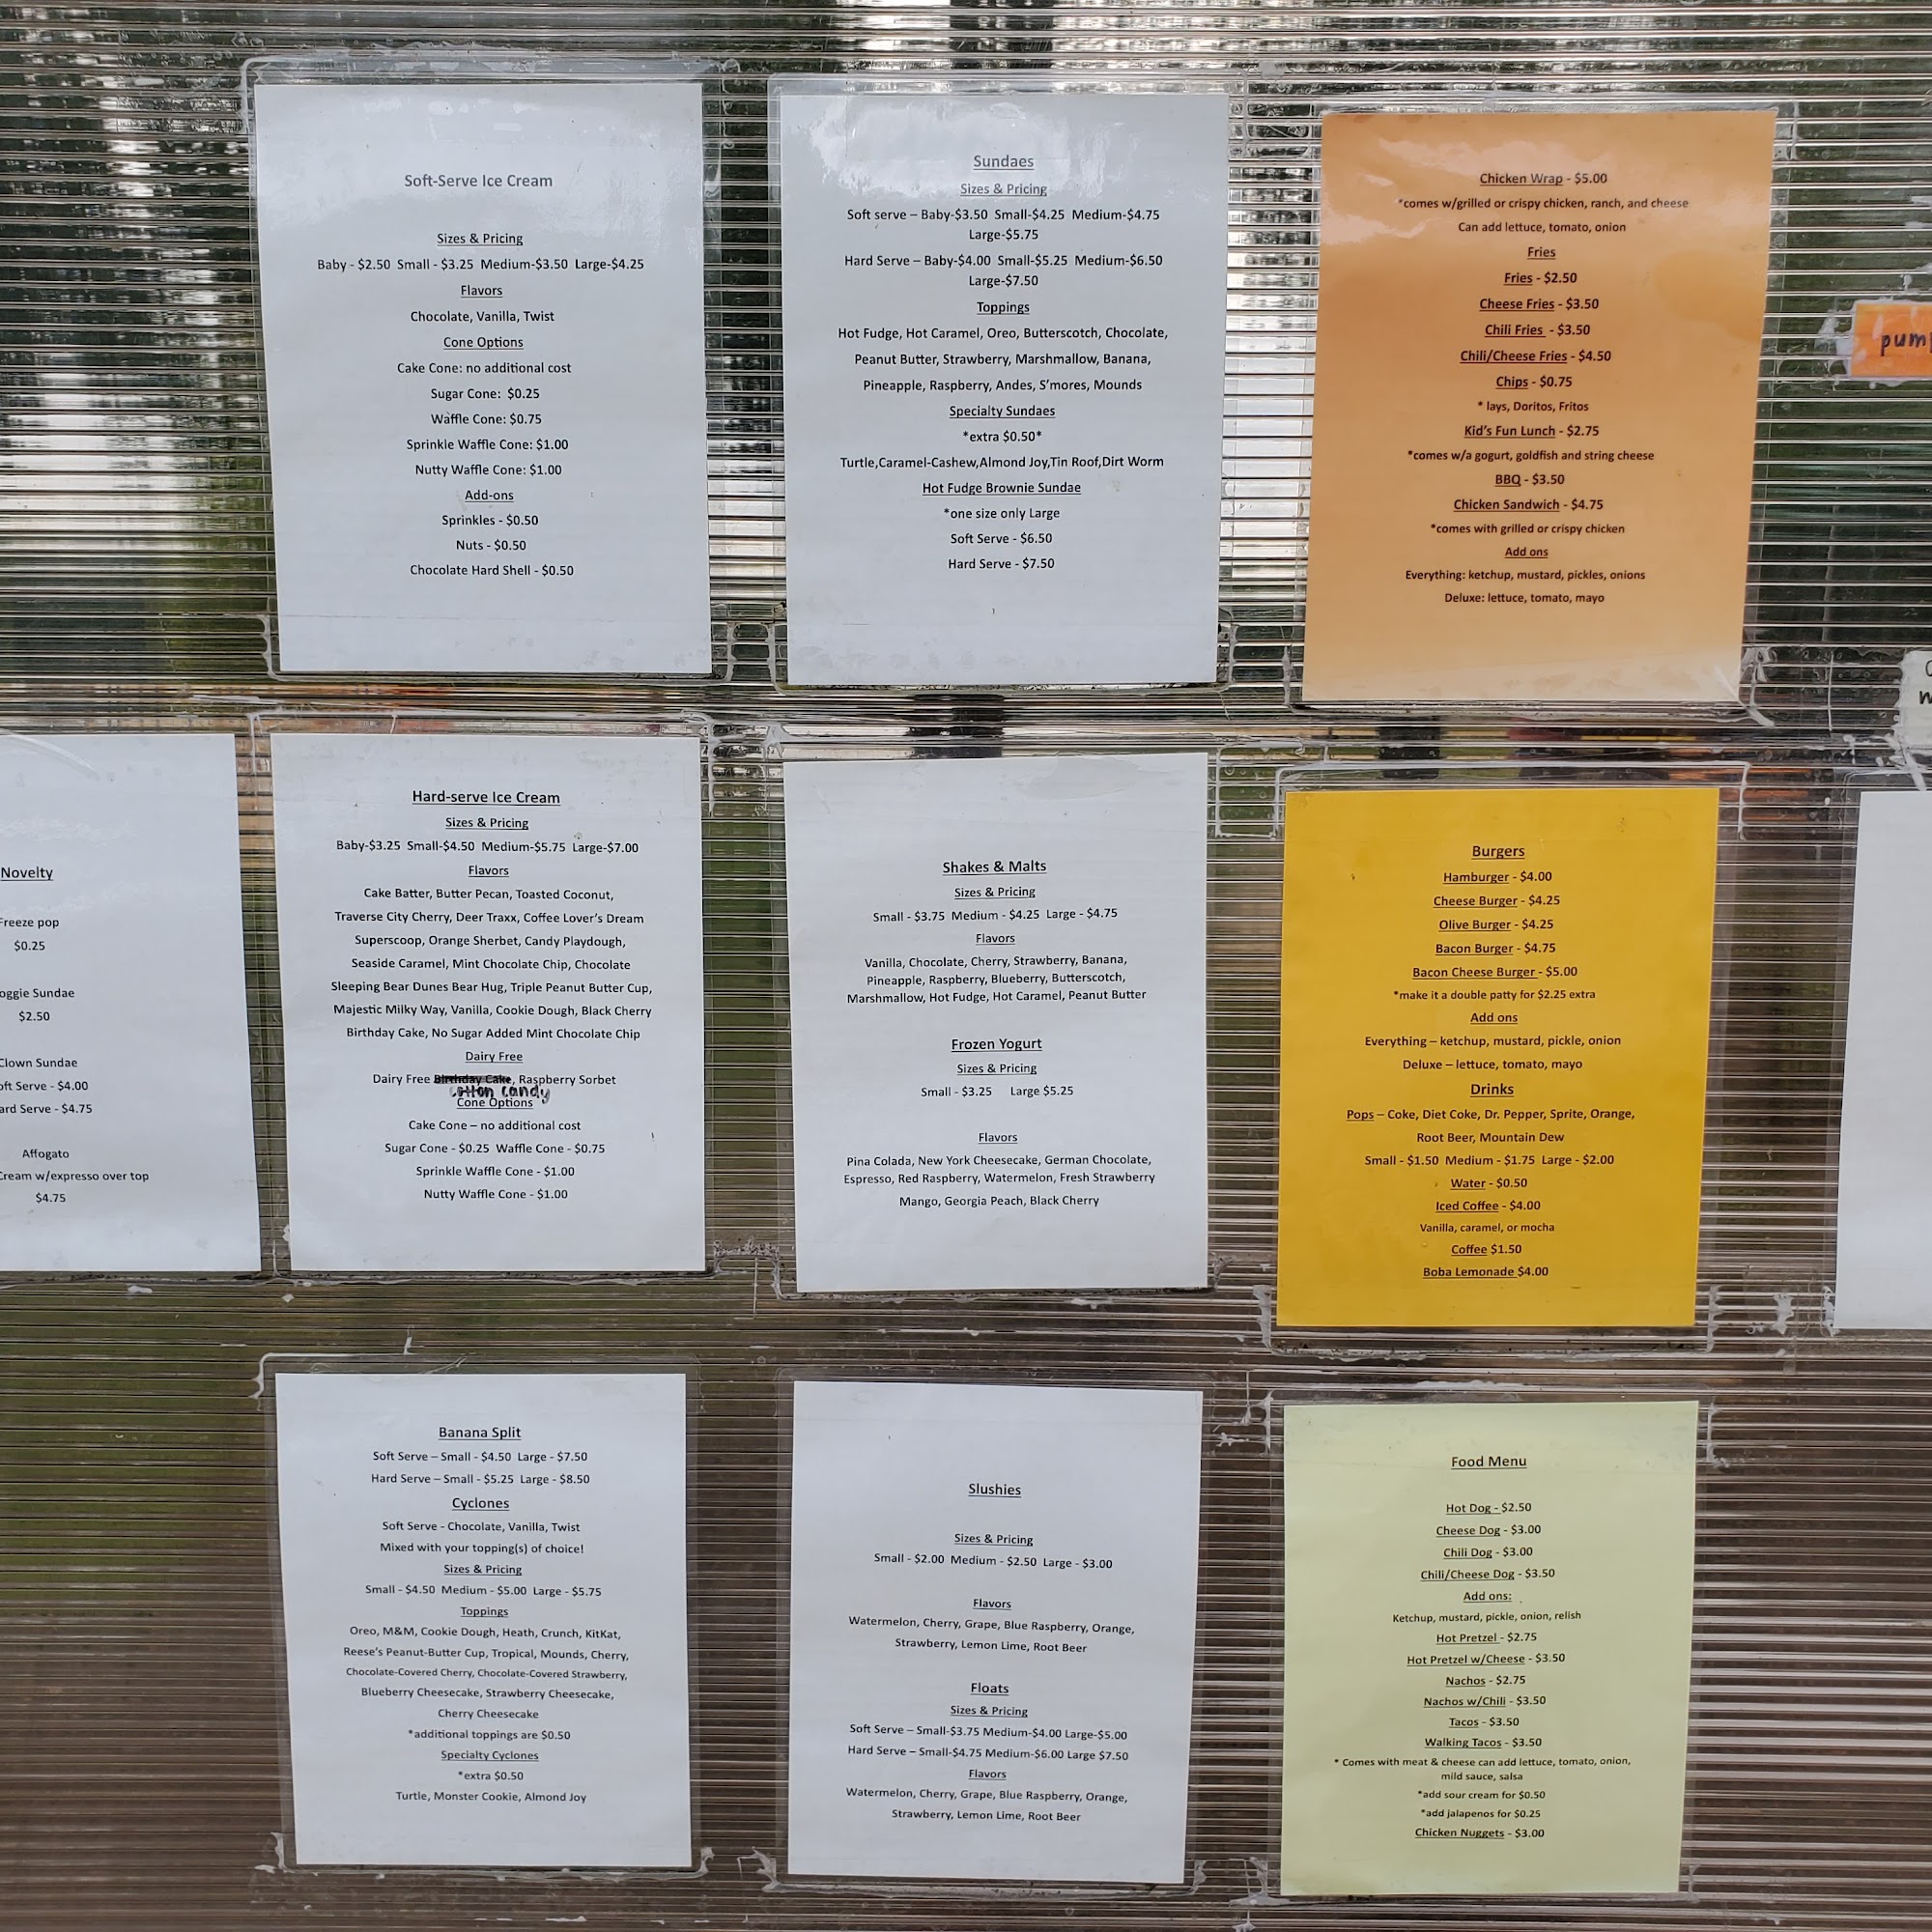 Soft-Serve Ice Cream
Sizes & Pricing
Baby - $2.50 Small - $3.25 Medium-$3.50 Large-$4.25
Flavors
Chocolate, Vanilla, Twist
Cone Options
Cake Cone: no additional cost
Sugar Cone: $0.25
Waffle Cone: $0.75
Sprinkle Waffle Cone: $1.00
Nutty Waffle Cone: $1.00
Add-ons
Sprinkles - $0.50
Nuts - $0.50
Chocolate Hard Shell - $0.50
Sundaes
Sizes & Pricing
Soft serve – Baby-$3.50 Small-$4.25 Medium-$4.75
Large-$5.75
Hard Serve – Baby-$4.00 Small-$5.25 Medium-$6.50
Large-$7.50
Toppings
Hot Fudge, Hot Caramel, Oreo, Butterscotch, Chocolate,
Peanut Butter, Strawberry, Marshmallow, Banana,
Pineapple, Raspberry, Andes, S'mores, Mounds
Specialty Sundaes
*extra $0.50*
Turtle,Caramel-Cashew,Almond Joy,Tin Roof,Dirt Worm
Hot Fudge Brownie Sundae
*one size only Large
Soft Serve - $6.50
Hard Serve - $7.50
Chicken Wrap - $5.00
*comes w/grilled or crispy chicken, ranch, and cheese
Can add lettuce, tomato, onion
Fries
Fries - $2.50
Cheese Fries - $3.50
Chili Fries - $3.50
Chili/Cheese Fries - $4.50
Chips - $0.75
* lays, Doritos, Fritos
Kid's Fun Lunch - $2.75
*comes w/a gogurt, goldfish and string cheese
BBQ - $3.50
Chicken Sandwich - $4.75
*comes with grilled or crispy chicken
Add ons
Everything: ketchup, mustard, pickles, onions
Deluxe: lettuce, tomato, mayo
pum
Novelty
Freeze pop
$0.25
oggie Sundae
$2.50
Clown Sundae
oft Serve - $4.00
ard Serve - $4.75
Affogato
Cream w/expresso over top
$4.75
Hard-serve Ice Cream
Sizes & Pricing
Baby-$3.25 Small-$4.50 Medium-$5.75 Large-$7.00
Flavors
Cake Batter, Butter Pecan, Toasted Coconut,
Traverse City Cherry, Deer Traxx, Coffee Lover's Dream
Superscoop, Orange Sherbet, Candy Playdough,
Seaside Caramel, Mint Chocolate Chip, Chocolate
Sleeping Bear Dunes Bear Hug, Triple Peanut Butter Cup,
Majestic Milky Way, Vanilla, Cookie Dough, Black Cherry
Birthday Cake, No Sugar Added Mint Chocolate Chip
Dairy Free
Dairy Free Birthday Cake, Raspberry Sorbet
cotton candy
Cone Options
Cake Cone – no additional cost
Sugar Cone - $0.25 Waffle Cone - $0.75
Sprinkle Waffle Cone - $1.00
Nutty Waffle Cone - $1.00
Shakes & Malts
Sizes & Pricing
Small - $3.75 Medium - $4.25 Large - $4.75
Flavors
Vanilla, Chocolate, Cherry, Strawberry, Banana,
Pineapple, Raspberry, Blueberry, Butterscotch,
Marshmallow, Hot Fudge, Hot Caramel, Peanut Butter
Frozen Yogurt
Sizes & Pricing
Small - $3.25 Large $5.25
Flavors
Pina Colada, New York Cheesecake, German Chocolate,
Espresso, Red Raspberry, Watermelon, Fresh Strawberry
Mango, Georgia Peach, Black Cherry
Burgers
Hamburger - $4.00
Cheese Burger - $4.25
Olive Burger - $4.25
Bacon Burger - $4.75
Bacon Cheese Burger - $5.00
*make it a double patty for $2.25 extra
Add ons
Everything – ketchup, mustard, pickle, onion
Deluxe – lettuce, tomato, mayo
Drinks
Pops – Coke, Diet Coke, Dr. Pepper, Sprite, Orange,
Root Beer, Mountain Dew
Small - $1.50 Medium - $1.75 Large - $2.00
Water - $0.50
Iced Coffee - $4.00
Vanilla, caramel, or mocha
Coffee $1.50
Boba Lemonade $4.00
Banana Split
Soft Serve – Small - $4.50 Large - $7.50
Hard Serve – Small - $5.25 Large - $8.50
Cyclones
Soft Serve - Chocolate, Vanilla, Twist
Mixed with your topping(s) of choice!
Sizes & Pricing
Small - $4.50 Medium - $5.00 Large - $5.75
Toppings
Oreo, M&M, Cookie Dough, Heath, Crunch, KitKat,
Reese's Peanut-Butter Cup, Tropical, Mounds, Cherry,
Chocolate-Covered Cherry, Chocolate-Covered Strawberry,
Blueberry Cheesecake, Strawberry Cheesecake,
Cherry Cheesecake
*additional toppings are $0.50
Specialty Cyclones
*extra $0.50
Turtle, Monster Cookie, Almond Joy
Slushies
Sizes & Pricing
Small - $2.00 Medium - $2.50 Large - $3.00
Flavors
Watermelon, Cherry, Grape, Blue Raspberry, Orange,
Strawberry, Lemon Lime, Root Beer
Floats
Sizes & Pricing
Soft Serve – Small-$3.75 Medium-$4.00 Large-$5.00
Hard Serve – Small-$4.75 Medium-$6.00 Large $7.50
Flavors
Watermelon, Cherry, Grape, Blue Raspberry, Orange,
Strawberry, Lemon Lime, Root Beer
Food Menu
Hot Dog - $2.50
Cheese Dog - $3.00
Chili Dog - $3.00
Chili/Cheese Dog - $3.50
Add ons:
Ketchup, mustard, pickle, onion, relish
Hot Pretzel - $2.75
Hot Pretzel w/Cheese - $3.50
Nachos - $2.75
Nachos w/Chili - $3.50
Tacos - $3.50
Walking Tacos - $3.50
* Comes with meat & cheese can add lettuce, tomato, onion,
mild sauce, salsa
*add sour cream for $0.50
*add jalapenos for $0.25
Chicken Nuggets - $3.00